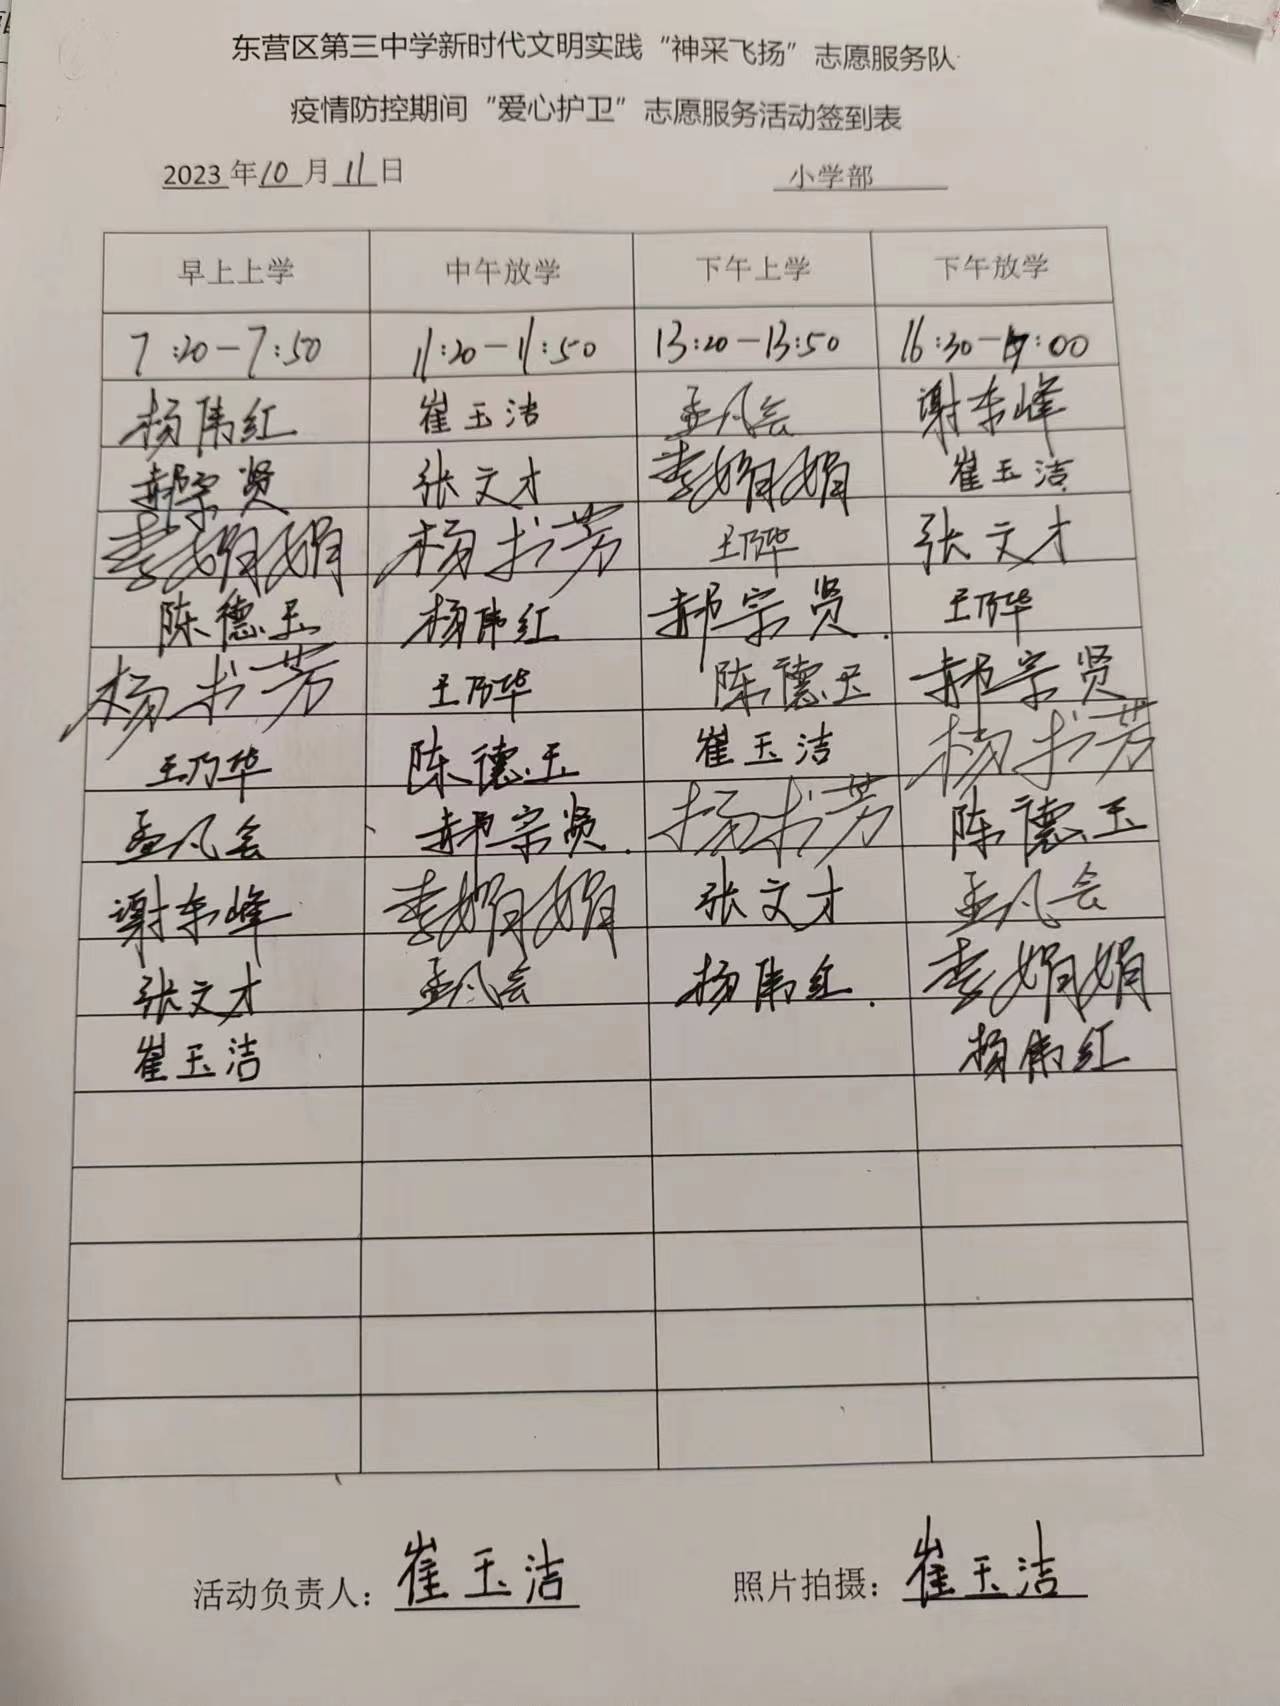 东营区第三中学新时代文明实践“神采飞扬”志愿服务队
疫情防控期间“爱心护卫”志愿服务活动签到表
2023年10月11日 小学部
早上上学 中午放学 下午上学 下午放学
7:20-7:50 11:20-11:50 13:20-13:50 16:30-17:00
杨伟红 崔玉洁 孟凡会 谢东峰
郝宗贤 张文才 李娟娟 崔玉洁
李娟娟 杨书芳 王乃华 张文才
陈德玉 杨伟红 郝宗贤 王乃华
杨书芳 王乃华 陈德玉 郝宗贤
王乃华 陈德玉 崔玉洁 杨书芳
孟凡会 郝宗贤 杨书芳 陈德玉
谢东峰 李娟娟 张文才 孟凡会
张文才 孟凡会 杨伟红 李娟娟
崔玉洁 杨伟红
活动负责人：崔玉洁 照片拍摄：崔玉洁